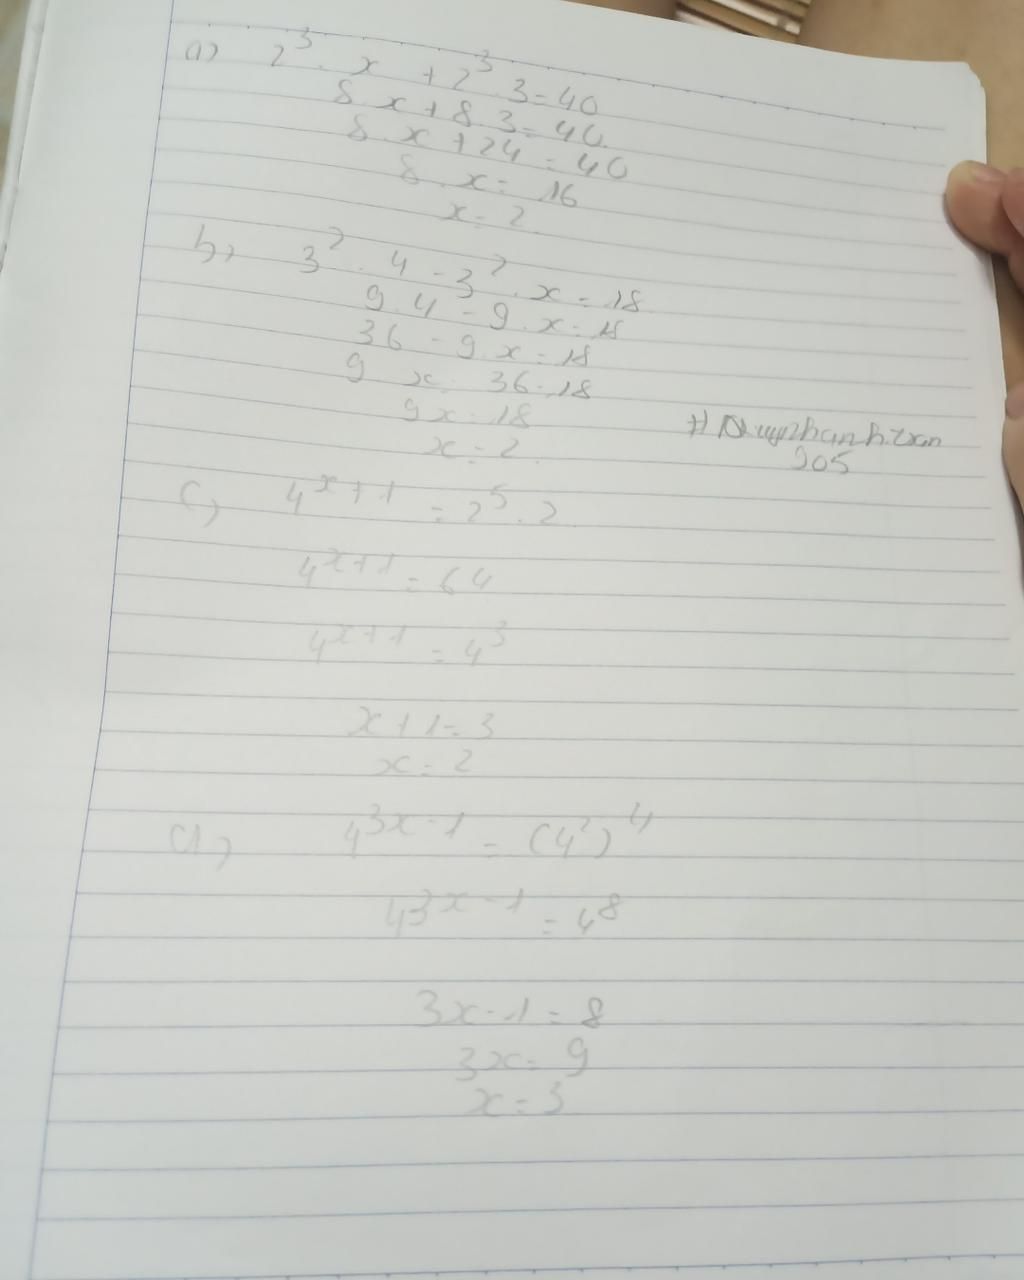 a) 2³. x + 2³. 3 = 40
8. x + 8. 3 = 40
8. x + 24 = 40
8. x = 16
x = 2
b) 3². 4 - 3². x = 18
9. 4 - 9. x = 18
36 - 9. x = 18
9 x = 36 - 18
9x = 18
x = 2
905
c) 4ˣ⁺¹ = 2⁵. 2
4ˣ⁺¹ = 64
4ˣ⁺¹ = 4³
x + 1 = 3
x = 2
d) 4³ˣ⁻¹ = (4²)⁴
4³ˣ⁻¹ = 4⁸
3x - 1 = 8
3x = 9
x = 3